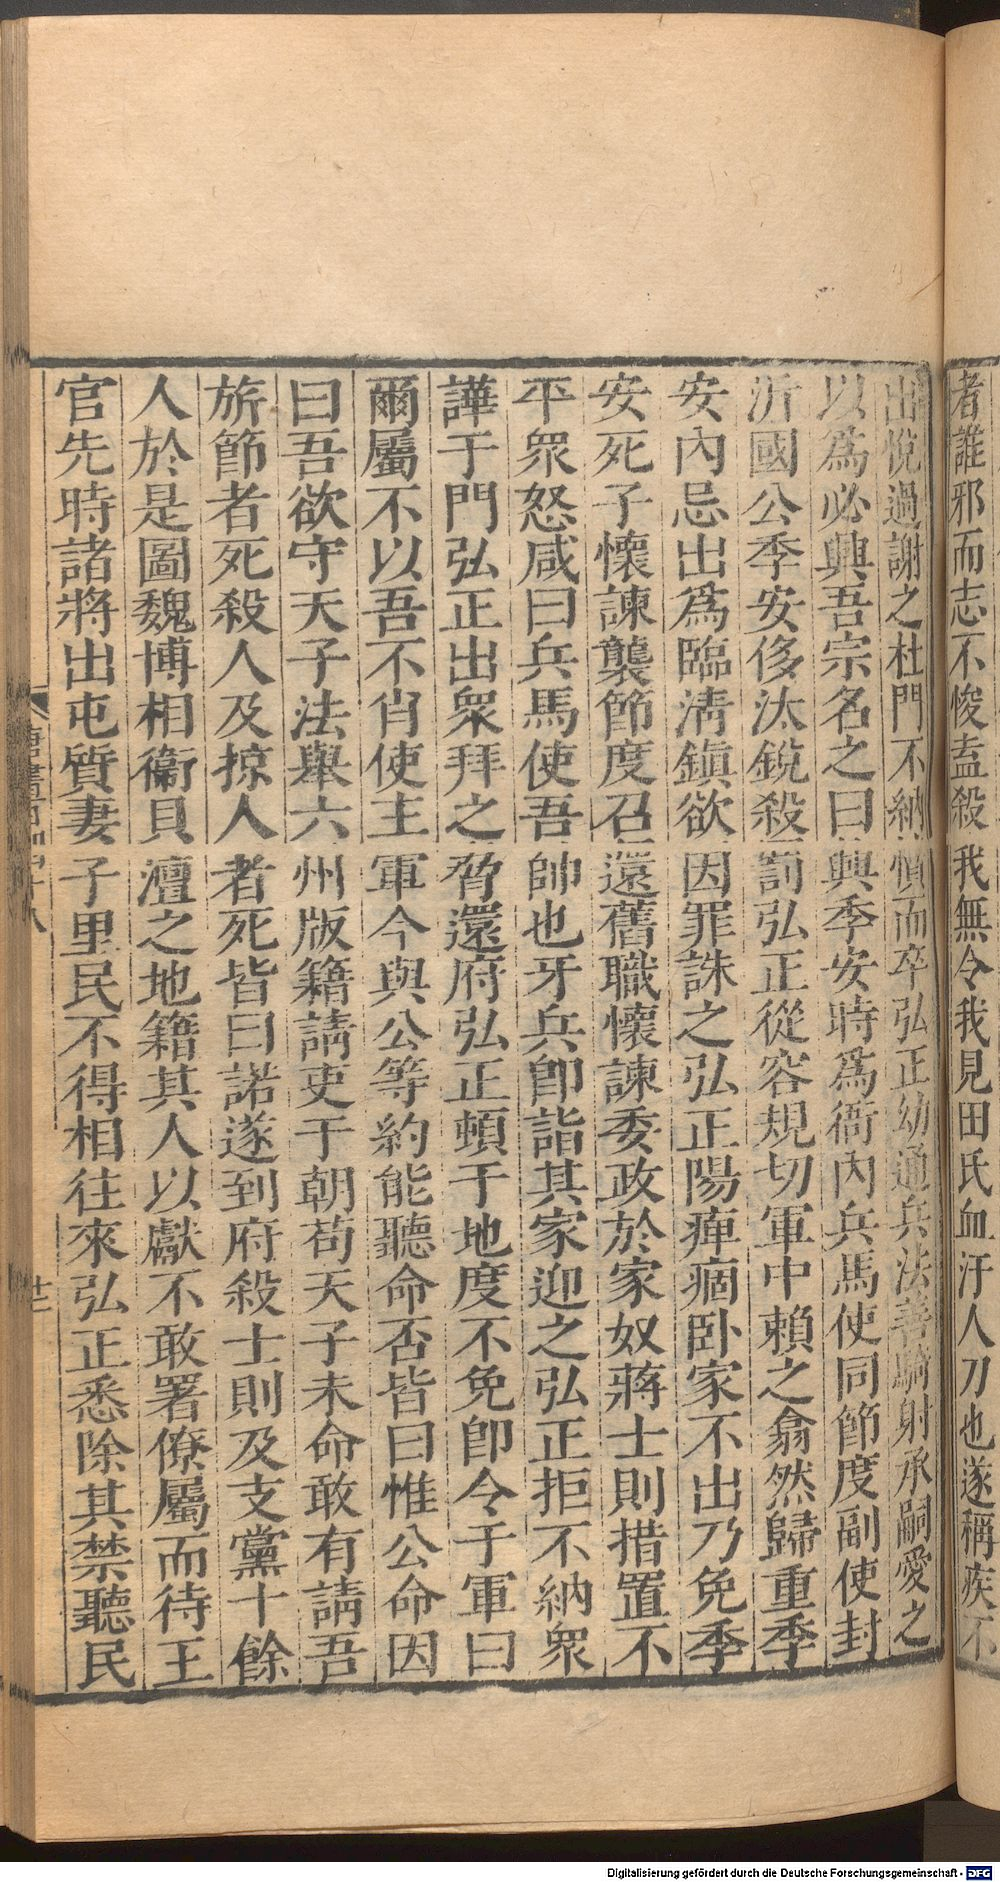 者誰邪而志不悛盍殺我無令我見田氏血汙人刀也遂稱疾不
出悅過謝之杜門不納憤而卒弘正幼通兵法善騎射承嗣愛之
以爲必興吾宗名之曰興季安時爲衙內兵馬使同節度副使封
沂國公季安侈汰銳殺罰弘正從容規切軍中賴之翕然歸重季
安內忌出爲臨淸鎭欲因罪誅之弘正陽痺痼臥家不出乃免季
安死子懷諫襲節度召還舊職懷諫委政於家奴蔣士則措置不
平眾怒咸曰兵馬使吾帥也牙兵卽詣其家迎之弘正拒不納眾
譁于門弘正出眾拜之脅還府弘正頓于地度不免卽令于軍曰
爾屬不以吾不肖使主軍今與公等約能聽命否皆曰惟公命因
曰吾欲守天子法舉六州版籍請吏于朝苟天子未命敢有請吾
旂節者死殺人及掠人者死皆曰諾遂到府殺士則及支黨十餘
人於是圖魏博相衞貝澶之地籍其人以獻不敢署僚屬而待王
官先時諸將出屯質妻子里民不得相往來弘正悉除其禁聽民
唐書百四十八
十二
Digitalisierung gefördert durch die Deutsche Forschungsgemeinschaft - DFG